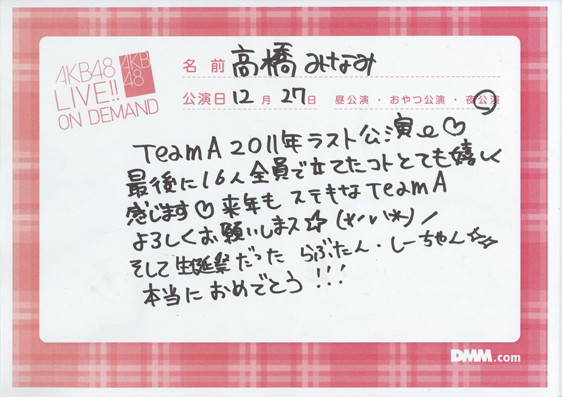 AKB48
LIVE!!
ON DEMAND
AKB
48
名前 高橋みなみ
公演日 12月27日 昼公演・おやつ公演・夜公演
TeamA 2011年ラスト公演♡
最後に16人全員で立てたコトとても嬉しく
感じます♡来年もステキなTeamA
よろしくお願いしまス☆(*ノハ*)ノ
そして生誕祭だった らぶたん・しーちゃん☆☆
本当におめでとう!!!
DMM.com